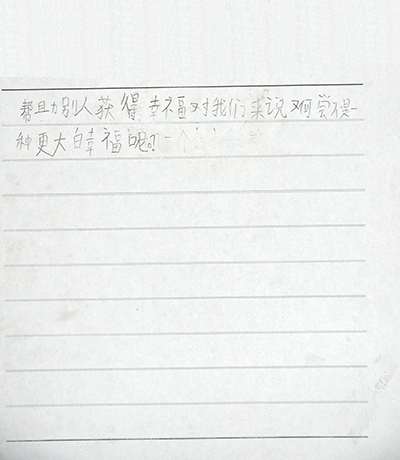 帮助别人获得幸福对我们来说又何尝不是一
种更大的幸福呢?